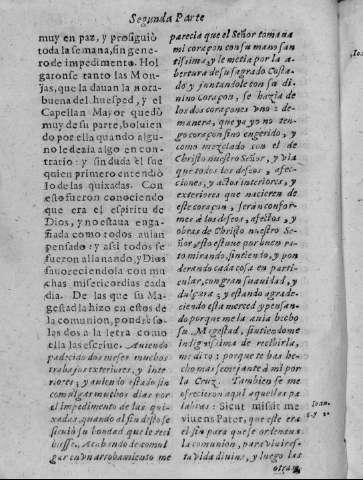 Segunda Parte
muy en paz, y prosiguiò
toda la semana, sin gene-
ro de impedimento. Hol
garonse tanto las Mon-
jas, que la dauan la nora-
buena del huesped, y el
Capellan Mayor quedò
muy de su parte, boluien
do por ella quando algu-
no le dezia algo en con-
trario: y sin duda el fue
quien primero entendiò
lo de las quixadas. Con
esto fueron conociendo
que era el espiritu de
Dios, y no estaua enga-
ñada como todos auian
pensado: y assi todos se
fueron allanando, y Dios
fauoreciendola con mu
chas misericordias cada
dia. De las que su Ma-
gestad la hizo en estos de
la comunion, pondrè so-
las dos a la letra como
ella las escriue. Auiendo
padecido dos meses muchos
trabajos exteriores, y inte
riores; y auiendo estado sin
comulgar muchos dias por
el impedimento de las qui-
xadas, quando al fin desto se
siruiò su bondad que le reci
biesse. Acabando de comul
gar en vn arrobamiento me
parecia que el Señor tomaua
mi coraçon con su mano san
tissima, y le metia por la a-
bertura de su sagrado Costa-
do, y juntandole con su di-
uino Coraçon, se hazia de
los dos coraçones vno: de-
manera, que ya yo no ten-
go coraçon sino engerido, y
como mezclado con el de
Christo nuestro Señor, y via
que todos los deseos, afec-
ciones, y actos interiores, y
exteriores que nacieren de
este coraçon, seràn confor-
mes à los deseos, afectos, y
obras de Christo nuestro Se-
ñor, esto estuue por buen ra-
to mirando, sintiento, y pon
derando cada cosa en parti-
cular, con gran suauidad, y
dulçura; y estando agrade-
ciendo esta merced y pensan-
do porque me la auia hecho
su Magestad, sintiendome
indignissima de recibirla,
me dixo: porque te has he-
cho mas semejante à mi por
la Cruz. Tambien se me
ofrecieron aqui aquellas pa
labras: Sicut missit me
viuens Pater, que este era
el fin para que se ordenaua
la comunion, para viuir es-
ta vida diuina, y luego las
otras
Ioan.